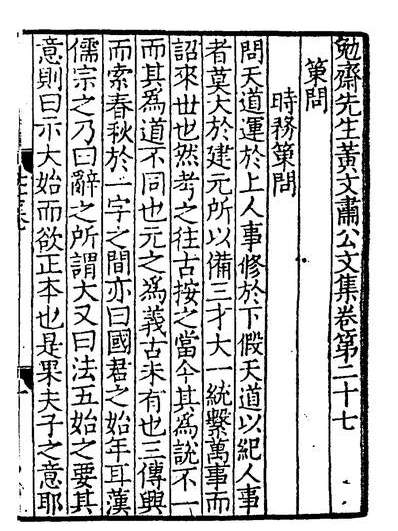 勉齋先生黃文肅公文集卷第二十七
策問
時務策問
問天道運於上人事修於下假天道以紀人事
者莫大於建元所以備三才大一統繫萬事而
詔來世也然考之往古按之當今其為說不一
而其為道不同也元之為義古未有也三傳興
而索春秋於一字之間亦曰國君之始年耳漢
儒宗之乃曰辭之所謂大又曰法五始之要其
意則曰示大始而欲正本也是果夫子之意耶